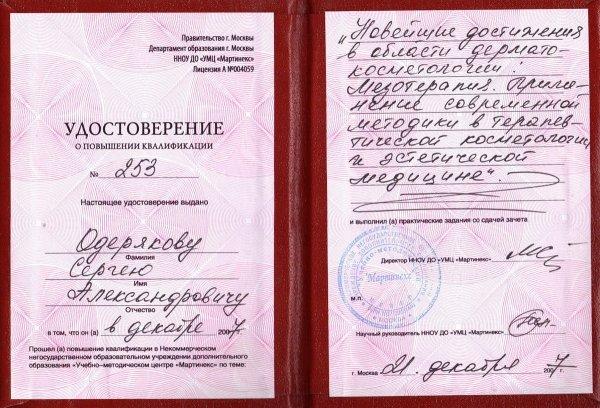 Правительство г. Москвы
Департамент образования г. Москвы
ННОУ ДО «УМЦ «Мартинекс»
Лицензия А №004059
УДОСТОВЕРЕНИЕ
О ПОВЫШЕНИИ КВАЛИФИКАЦИИ
№ 253
Настоящее удостоверение выдано
Одерякову
Фамилия
Сергею
Имя
Александровичу
Отчество
в том, что он (а) в декабре 2007
Прошел (а) повышение квалификации в Некоммерческом
негосударственном образовательном учреждении дополнительного
образования «Учебно-методическом центре «Мартинекс» по теме:
„Новейшие достижения
в области дермато-
косметологии:
Мезотерапия. Приме-
нение современной
методики в терапев-
тической косметологии
и эстетической
медицине".
и выполнил (а) практические задания со сдачей зачета
Директор ННОУ ДО «УМЦ «Мартинекс»
"Мартинекс"
м.п.
Научный руководитель ННОУ ДО «УМЦ «Мартинекс»
г. Москва 21. декабря 2007